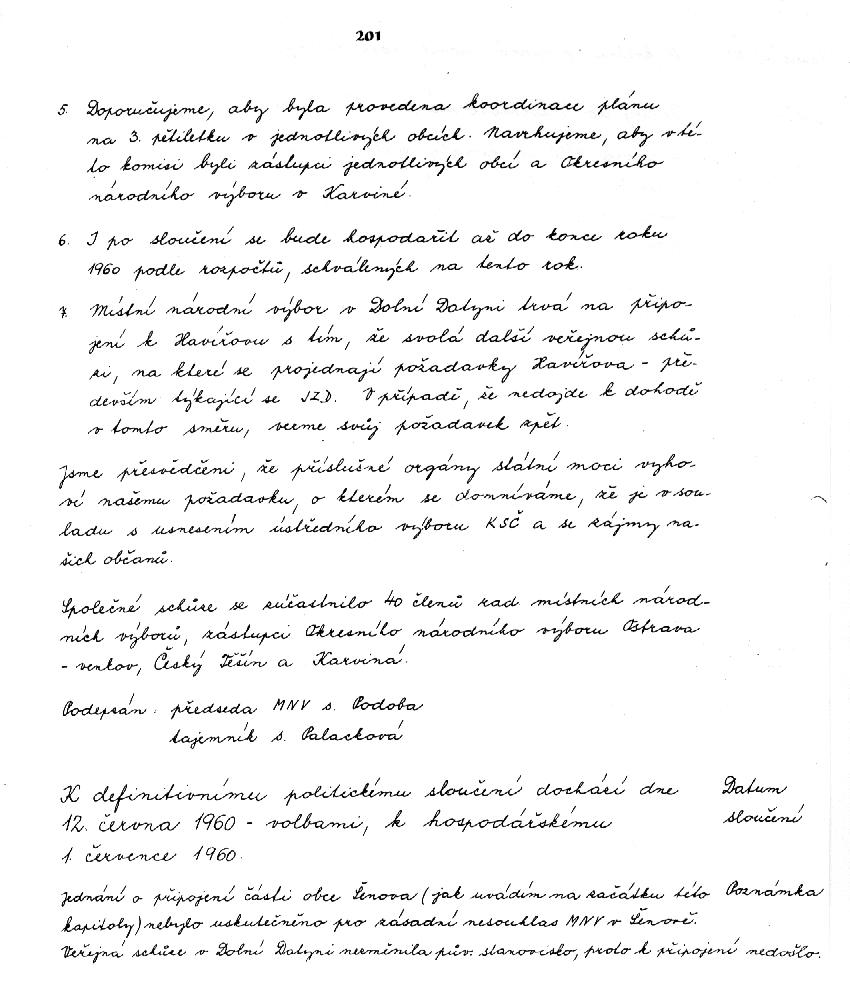 201
5. Doporučujeme, aby byla provedena koordinace plánu
na 3. pětiletku v jednotlivých obcích. Navrhujeme, aby v té-
to komisi byli zástupci jednotlivých obcí a Okresního
národního výboru v Karviné.
6. I po sloučení se bude hospodařit až do konce roku
1960 podle rozpočtů, schválených na tento rok.
7. Místní národní výbor v Dolní Datyni trvá na připo-
jení k Havířovu s tím, že svolá další veřejnou schů-
zi, na které se projednají požadavky Havířova - pře-
devším týkající se JZD. V případě, že nedojde k dohodě
v tomto směru, verme svůj požadavek zpět.
Jsme přesvědčeni, že příslušné orgány státní moci vyho-
ví našemu požadavku, o kterém se domníváme, že je v sou-
ladu s usnesením ústředního výboru KSČ a se zájmy na-
šich občanů.
Společné schůze se zúčastnilo 40 členů rad místních národ-
ních výborů, zástupci Okresního národního výboru Ostrava
- venkov, Český Těšín a Karviná.
Podepsán: předseda MNV s. Podoba
tajemník s. Palacková
K definitivnímu politickému sloučení dochází dne Datum
12. června 1960 - volbami, k hospodářskému sloučení
1. července 1960.
Jednání o připojení části obce Šenova (jak uvádím na začátku této Poznámka
kapitoly) nebylo uskutečněno pro zásadní nesouhlas MNV v Šenově.
Veřejná schůze v Dolní Datyni nezměnila pův. stanovisko, proto k připojení nedošlo.